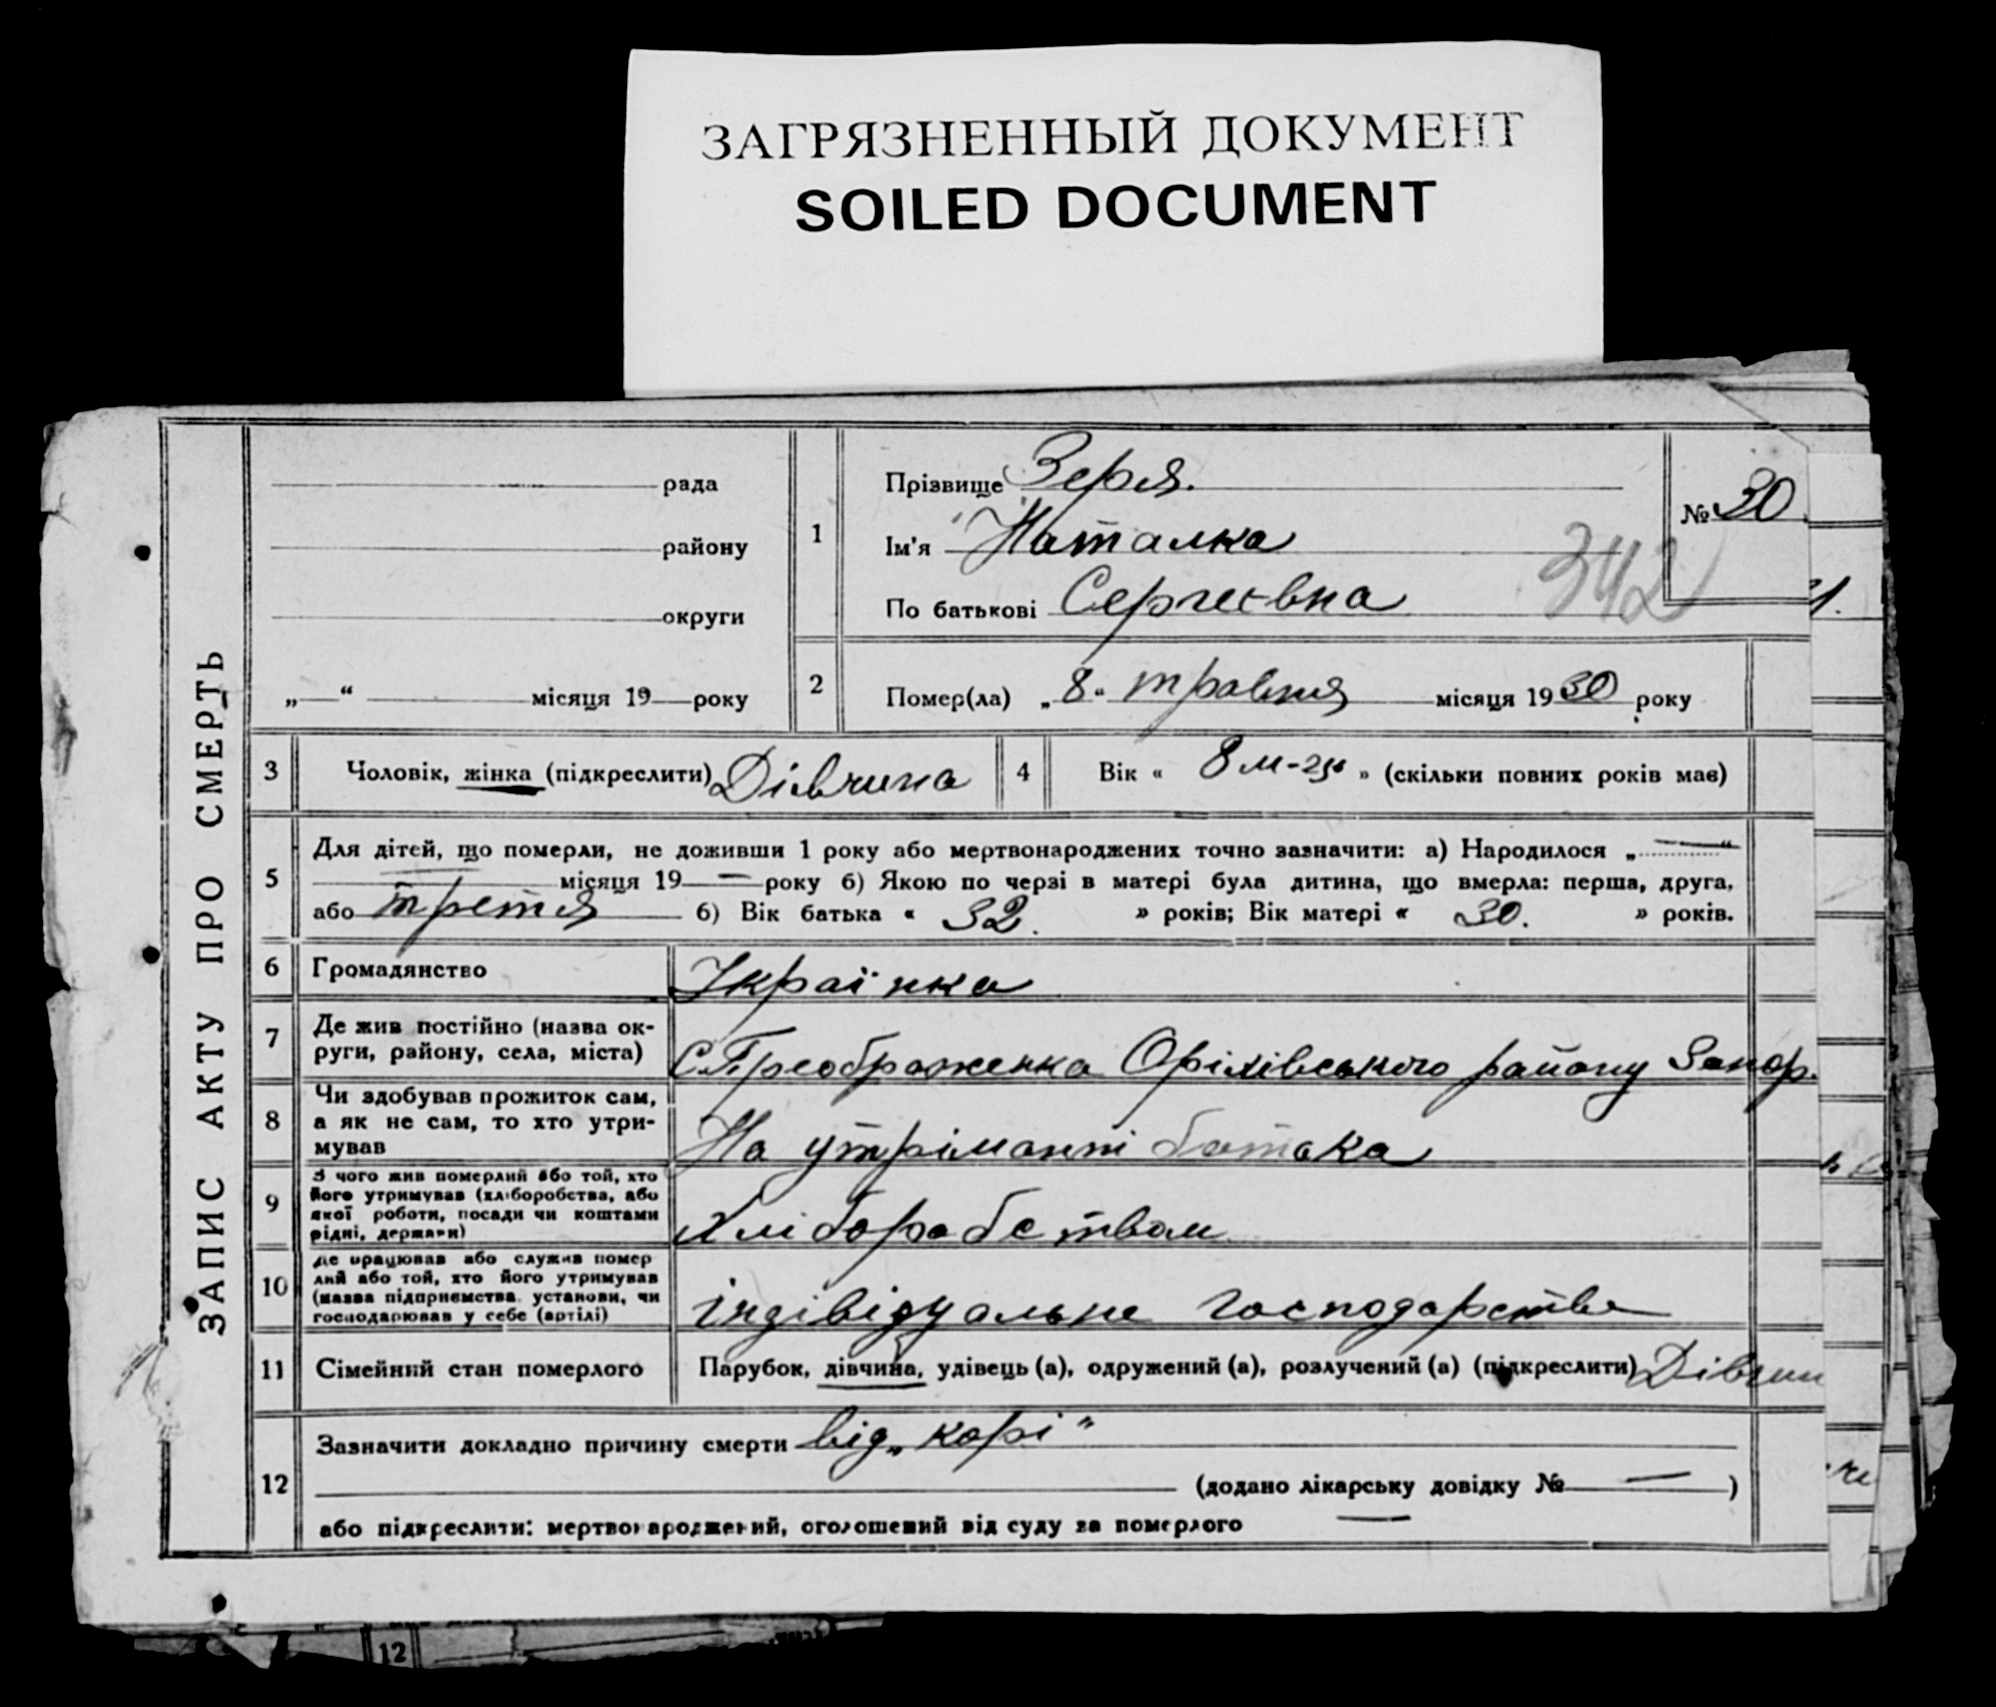 ЗАГРЯЗНЕННЫЙ ДОКУМЕНТ
SOILED DOCUMENT
ЗАПИС АКТУ ПРО СМЕРТЬ
рада
району
округи
„ “ місяця 19 року
1
Прізвище Зеря.
Ім'я Наталка
По батькові Сергеевна
№ 30
342
2
Помер(ла) „ 8 “ травня місяця 1930 року
3 Чоловік, жінка (підкреслити) Дівчина
4 Вік « 8 м-ув » (скільки повних років має)
5 Для дітей, що померли, не доживши 1 року або мертвонароджених точно зазначити: а) Народилося „ — “
місяця 19 — року б) Якою по черзі в матері була дитина, що вмерла: перша, друга,
або третя б) Вік батька « 32. » років; Вік матері « 30. » років.
6 Громадянство Українка
7 Де жив постійно (назва ок-
руги, району, села, міста) С. Преображенка Оріхівського району Запор.
8 Чи здобував прожиток сам,
а як не сам, то хто утри-
мував На утріманні батька
9 З чого жив померлий або той, хто
його утримував (хліборобства, або
якої роботи, посади чи коштами
рідні, держави) Хліборобством
10 Де працював або служив помер
лий або той, хто його утримував
(назва підприємства установи, чи
господарював у себе (артілі) індівідуальне господарство
11 Сімейний стан померлого Парубок, дівчина, удівець (а), одружений (а), розлучений (а) (підкреслити) Дівчин
12 Зазначити докладно причину смерти від „корі“
(додано лікарську довідку № — )
або підкреслити: мертвонароджений, оголошений від суду за померлого —
12